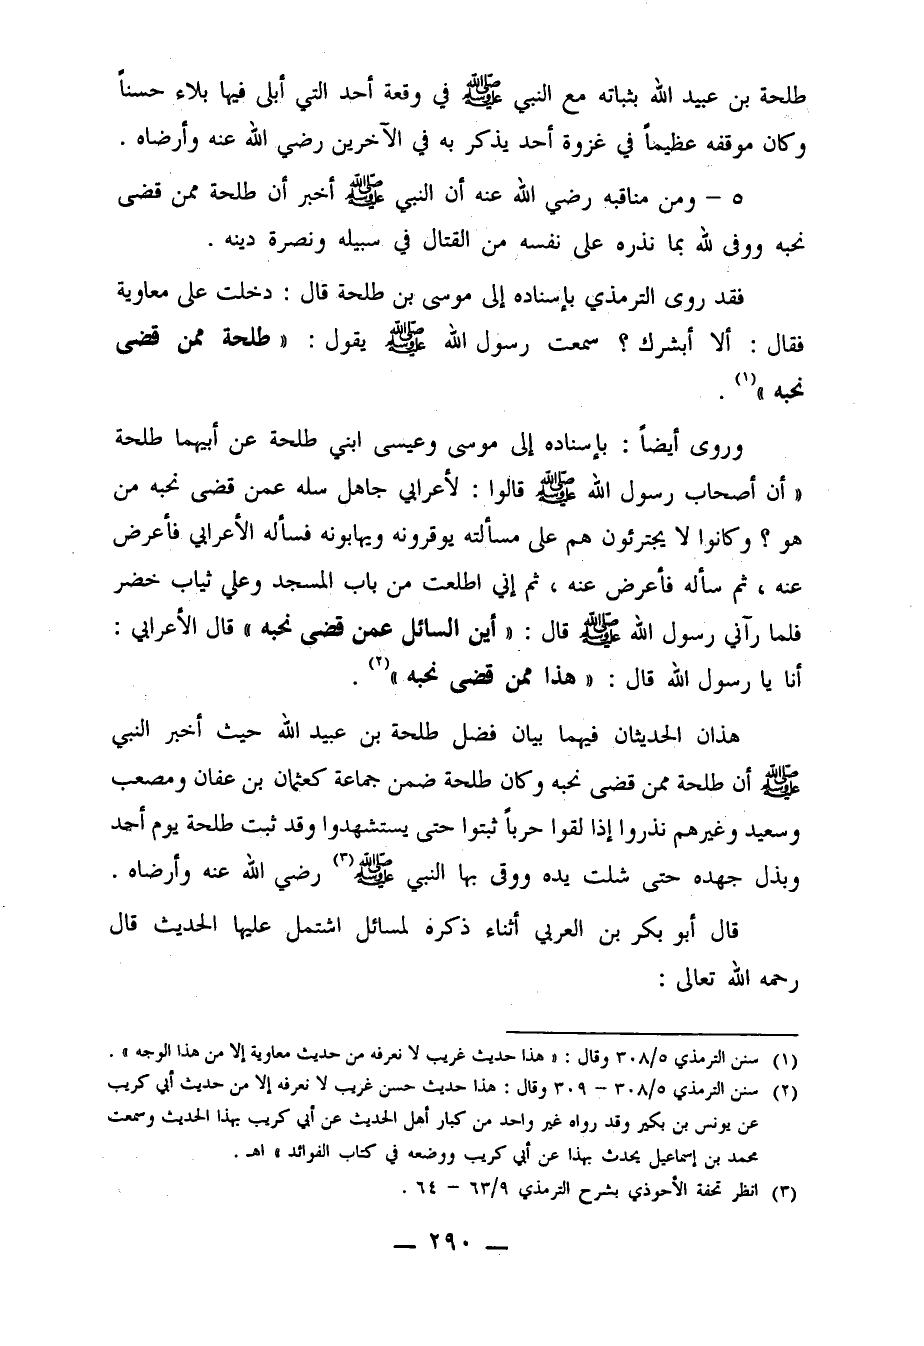 طلحة بن عبيد الله بثباته مع النبي ﷺ في وقعة أحد التي أبلى فيها بلاء حسناً
وكان موقفه عظيماً في غزوة أحد يذكر به في الآخرين رضي الله عنه وأرضاه .
٥ – ومن مناقبه رضي الله عنه أن النبي ﷺ أخبر أن طلحة ممن قضى
نحبه ووفى لله بما نذره على نفسه من القتال في سبيله ونصرة دينه .
فقد روى الترمذي بإسناده إلى موسى بن طلحة قال : دخلت على معاوية
فقال : ألا أبشرك ؟ سمعت رسول الله ﷺ يقول : « طلحة ممن قضى
نحبه »(١) .
وروى أيضاً : بإسناده إلى موسى وعيسى ابني طلحة عن أبيهما طلحة
« أن أصحاب رسول الله ﷺ قالوا : لأعرابي جاهل سله عمن قضى نحبه من
هو ؟ وكانوا لا يجترئون هم على مسألته يوقرونه ويهابونه فسأله الأعرابي فأعرض
عنه ، ثم سأله فأعرض عنه ، ثم إني اطلعت من باب المسجد وعلي ثياب خضر
فلما رآني رسول الله ﷺ قال : « أين السائل عمن قضى نحبه » قال الأعرابي :
أنا يا رسول الله قال : « هذا ممن قضى نحبه »(٢) .
هذان الحديثان فيهما بيان فضل طلحة بن عبيد الله حيث أخبر النبي
ﷺ أن طلحة ممن قضى نحبه وكان طلحة ضمن جماعة كعثمان بن عفان ومصعب
وسعيد وغيرهم نذروا إذا لقوا حرباً ثبتوا حتى يستشهدوا وقد ثبت طلحة يوم أحد
وبذل جهده حتى شلت يده ووقى بها النبي ﷺ(٣) رضي الله عنه وأرضاه .
قال أبو بكر بن العربي أثناء ذكره لمسائل اشتمل عليها الحديث قال
رحمه الله تعالى :
(١) سنن الترمذي ٣٠٨/٥ وقال : « هذا حديث غريب لا نعرفه من حديث معاوية إلا من هذا الوجه » .
(٢) سنن الترمذي ٣٠٨/٥ – ٣٠٩ وقال : هذا حديث حسن غريب لا نعرفه إلا من حديث أبي كريب
عن يونس بن بكير وقد رواه غير واحد من كبار أهل الحديث عن أبي كريب بهذا الحديث وسمعت
محمد بن إسماعيل يحدث بهذا عن أبي كريب ووضعه في كتاب الفوائد » اهـ .
(٣) انظر تحفة الأحوذي بشرح الترمذي ٦٣/٩ – ٦٤ .
— ٢٩٠ —